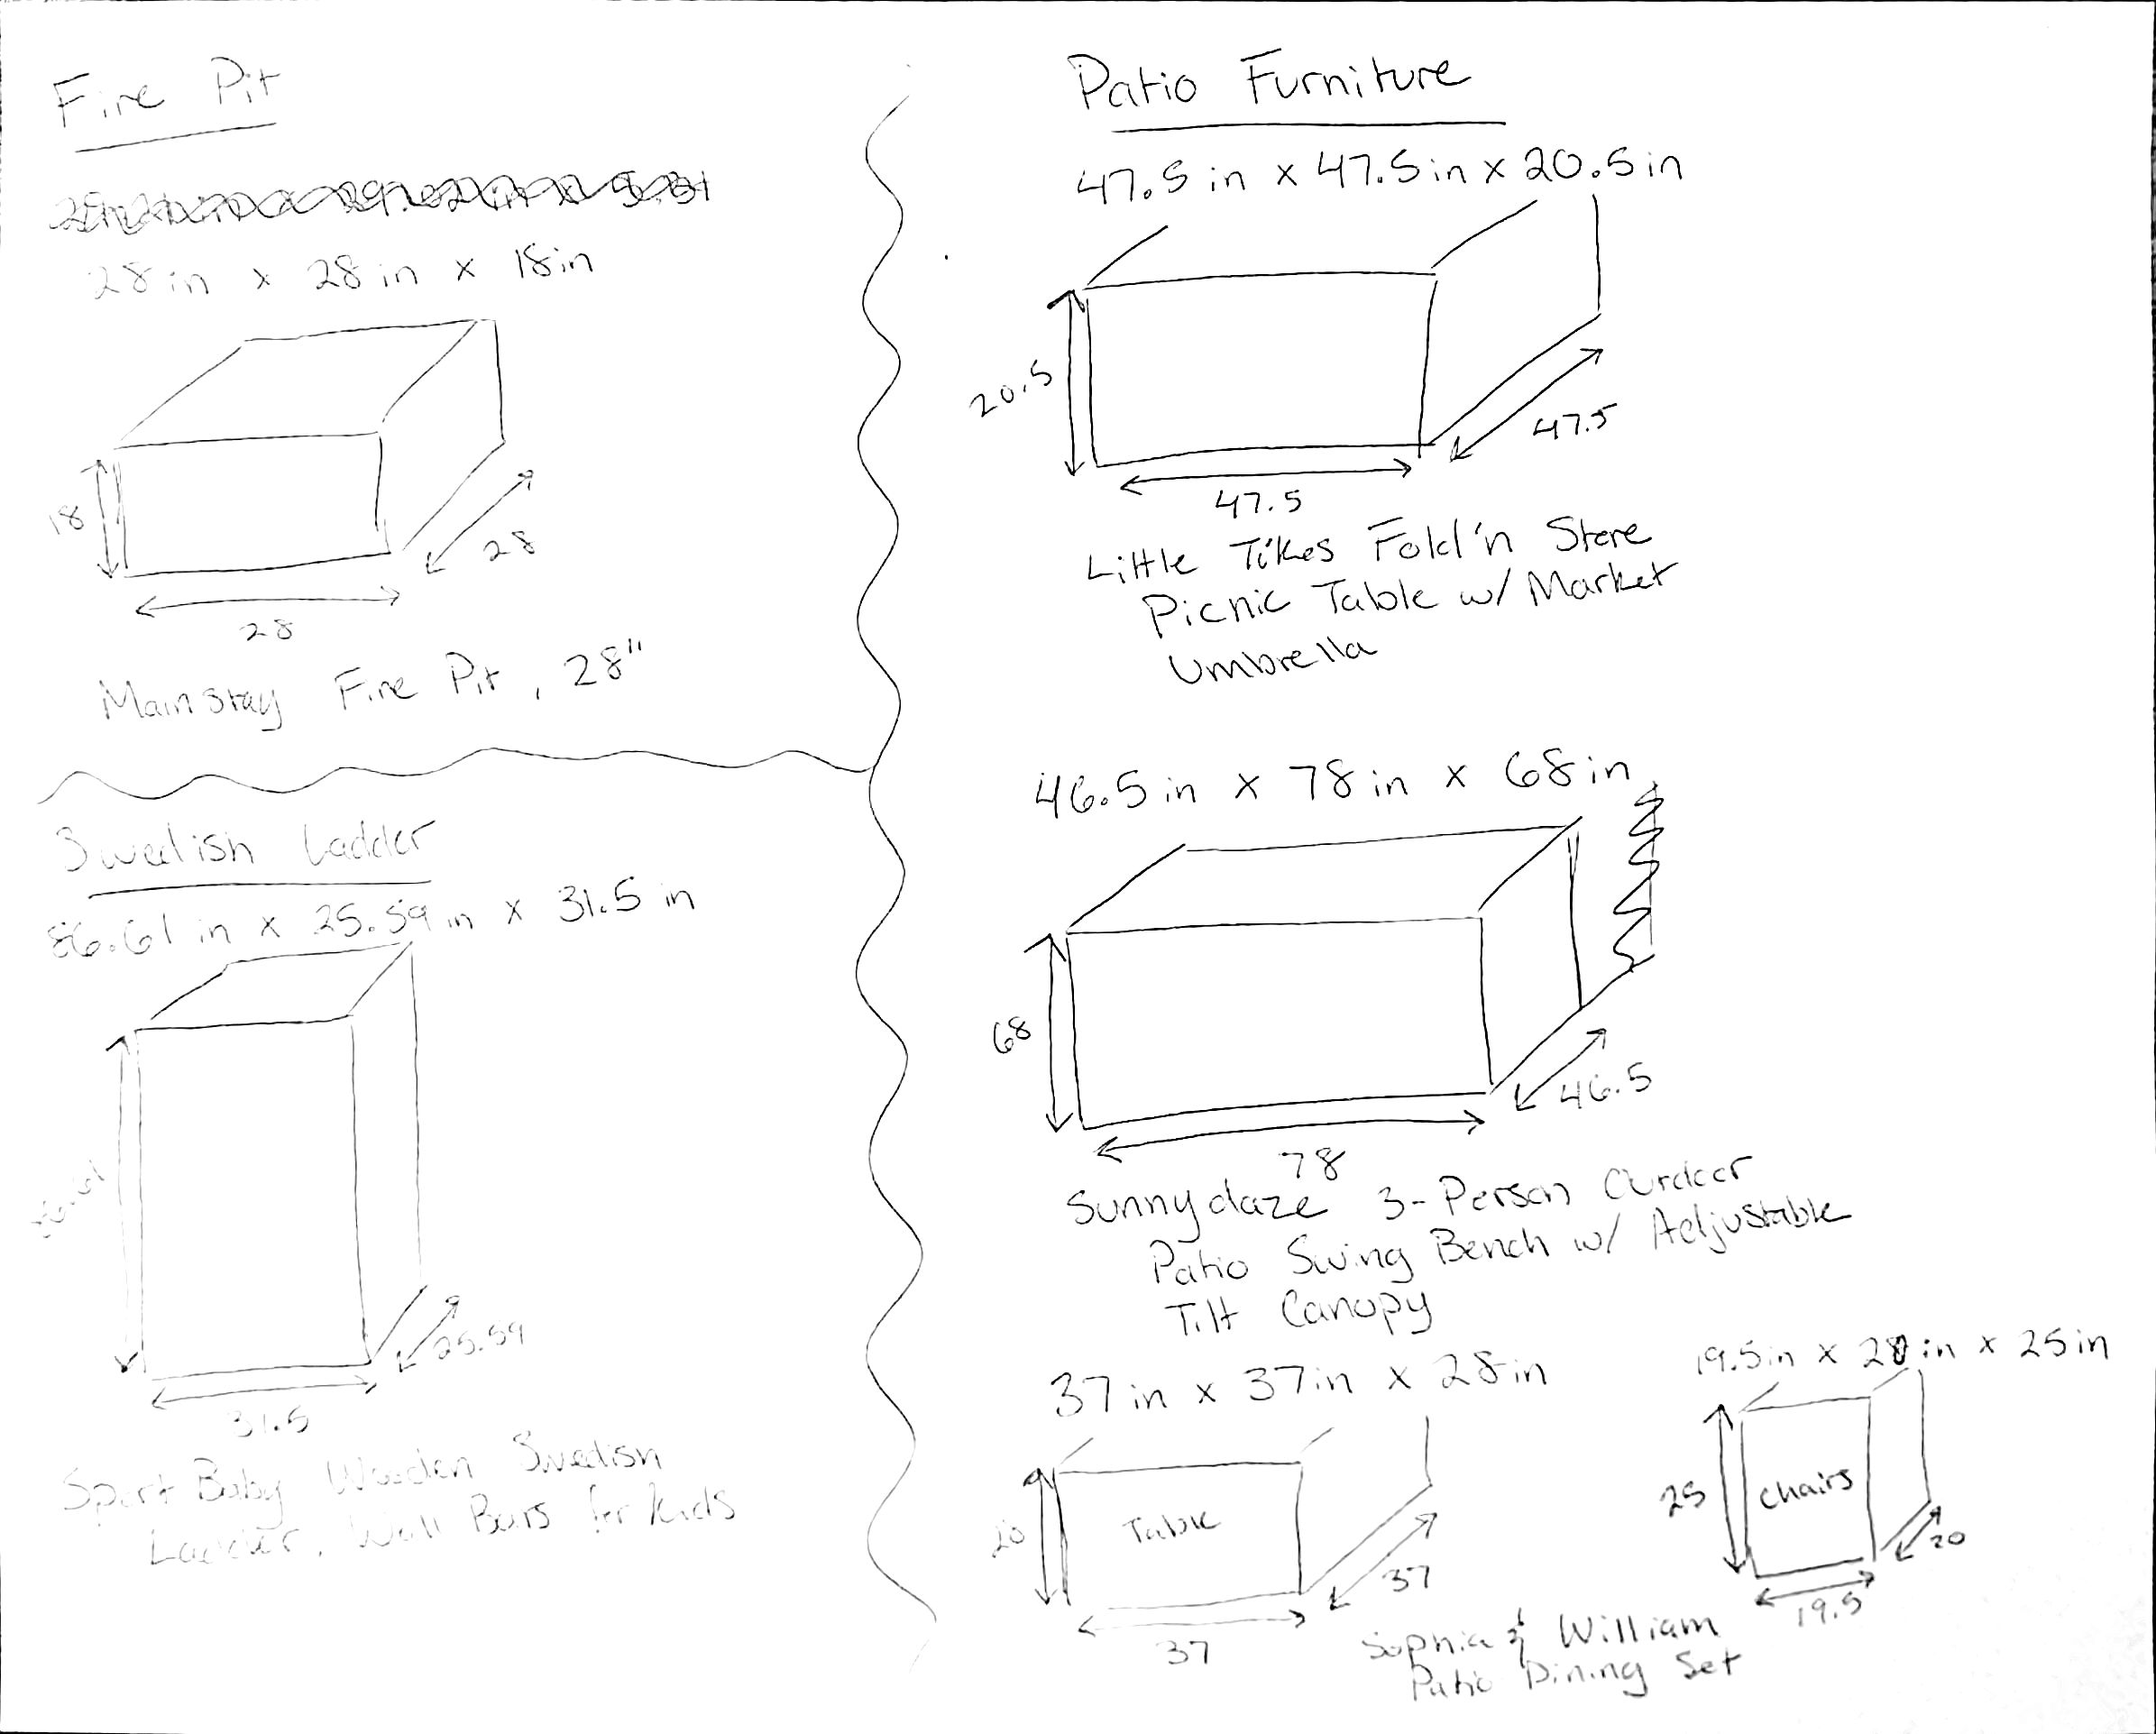 Fire Pit
28in x 28in x 18in
18
28
28
Mainstay Fire Pit, 28"
Swedish Ladder
86.61 in x 25.59 in x 31.5 in
25.59
31.5
Sport Baby Wooden Swedish
Ladder, Wall Bars for Kids
Patio Furniture
47.5 in x 47.5 in x 20.5 in
20.5
47.5
47.5
Little Tikes Fold'n Store
Picnic Table w/ Market
Umbrella
46.5 in x 78 in x 68 in
68
46.5
78
Sunnydaze 3-Person Outdoor
Patio Swing Bench w/ Adjustable
Tilt Canopy
37 in x 37 in x 28 in
Table
37
37
19.5in x in x 25 in
25
Chairs
20
19.5
Sophia & William
Patio Dining Set